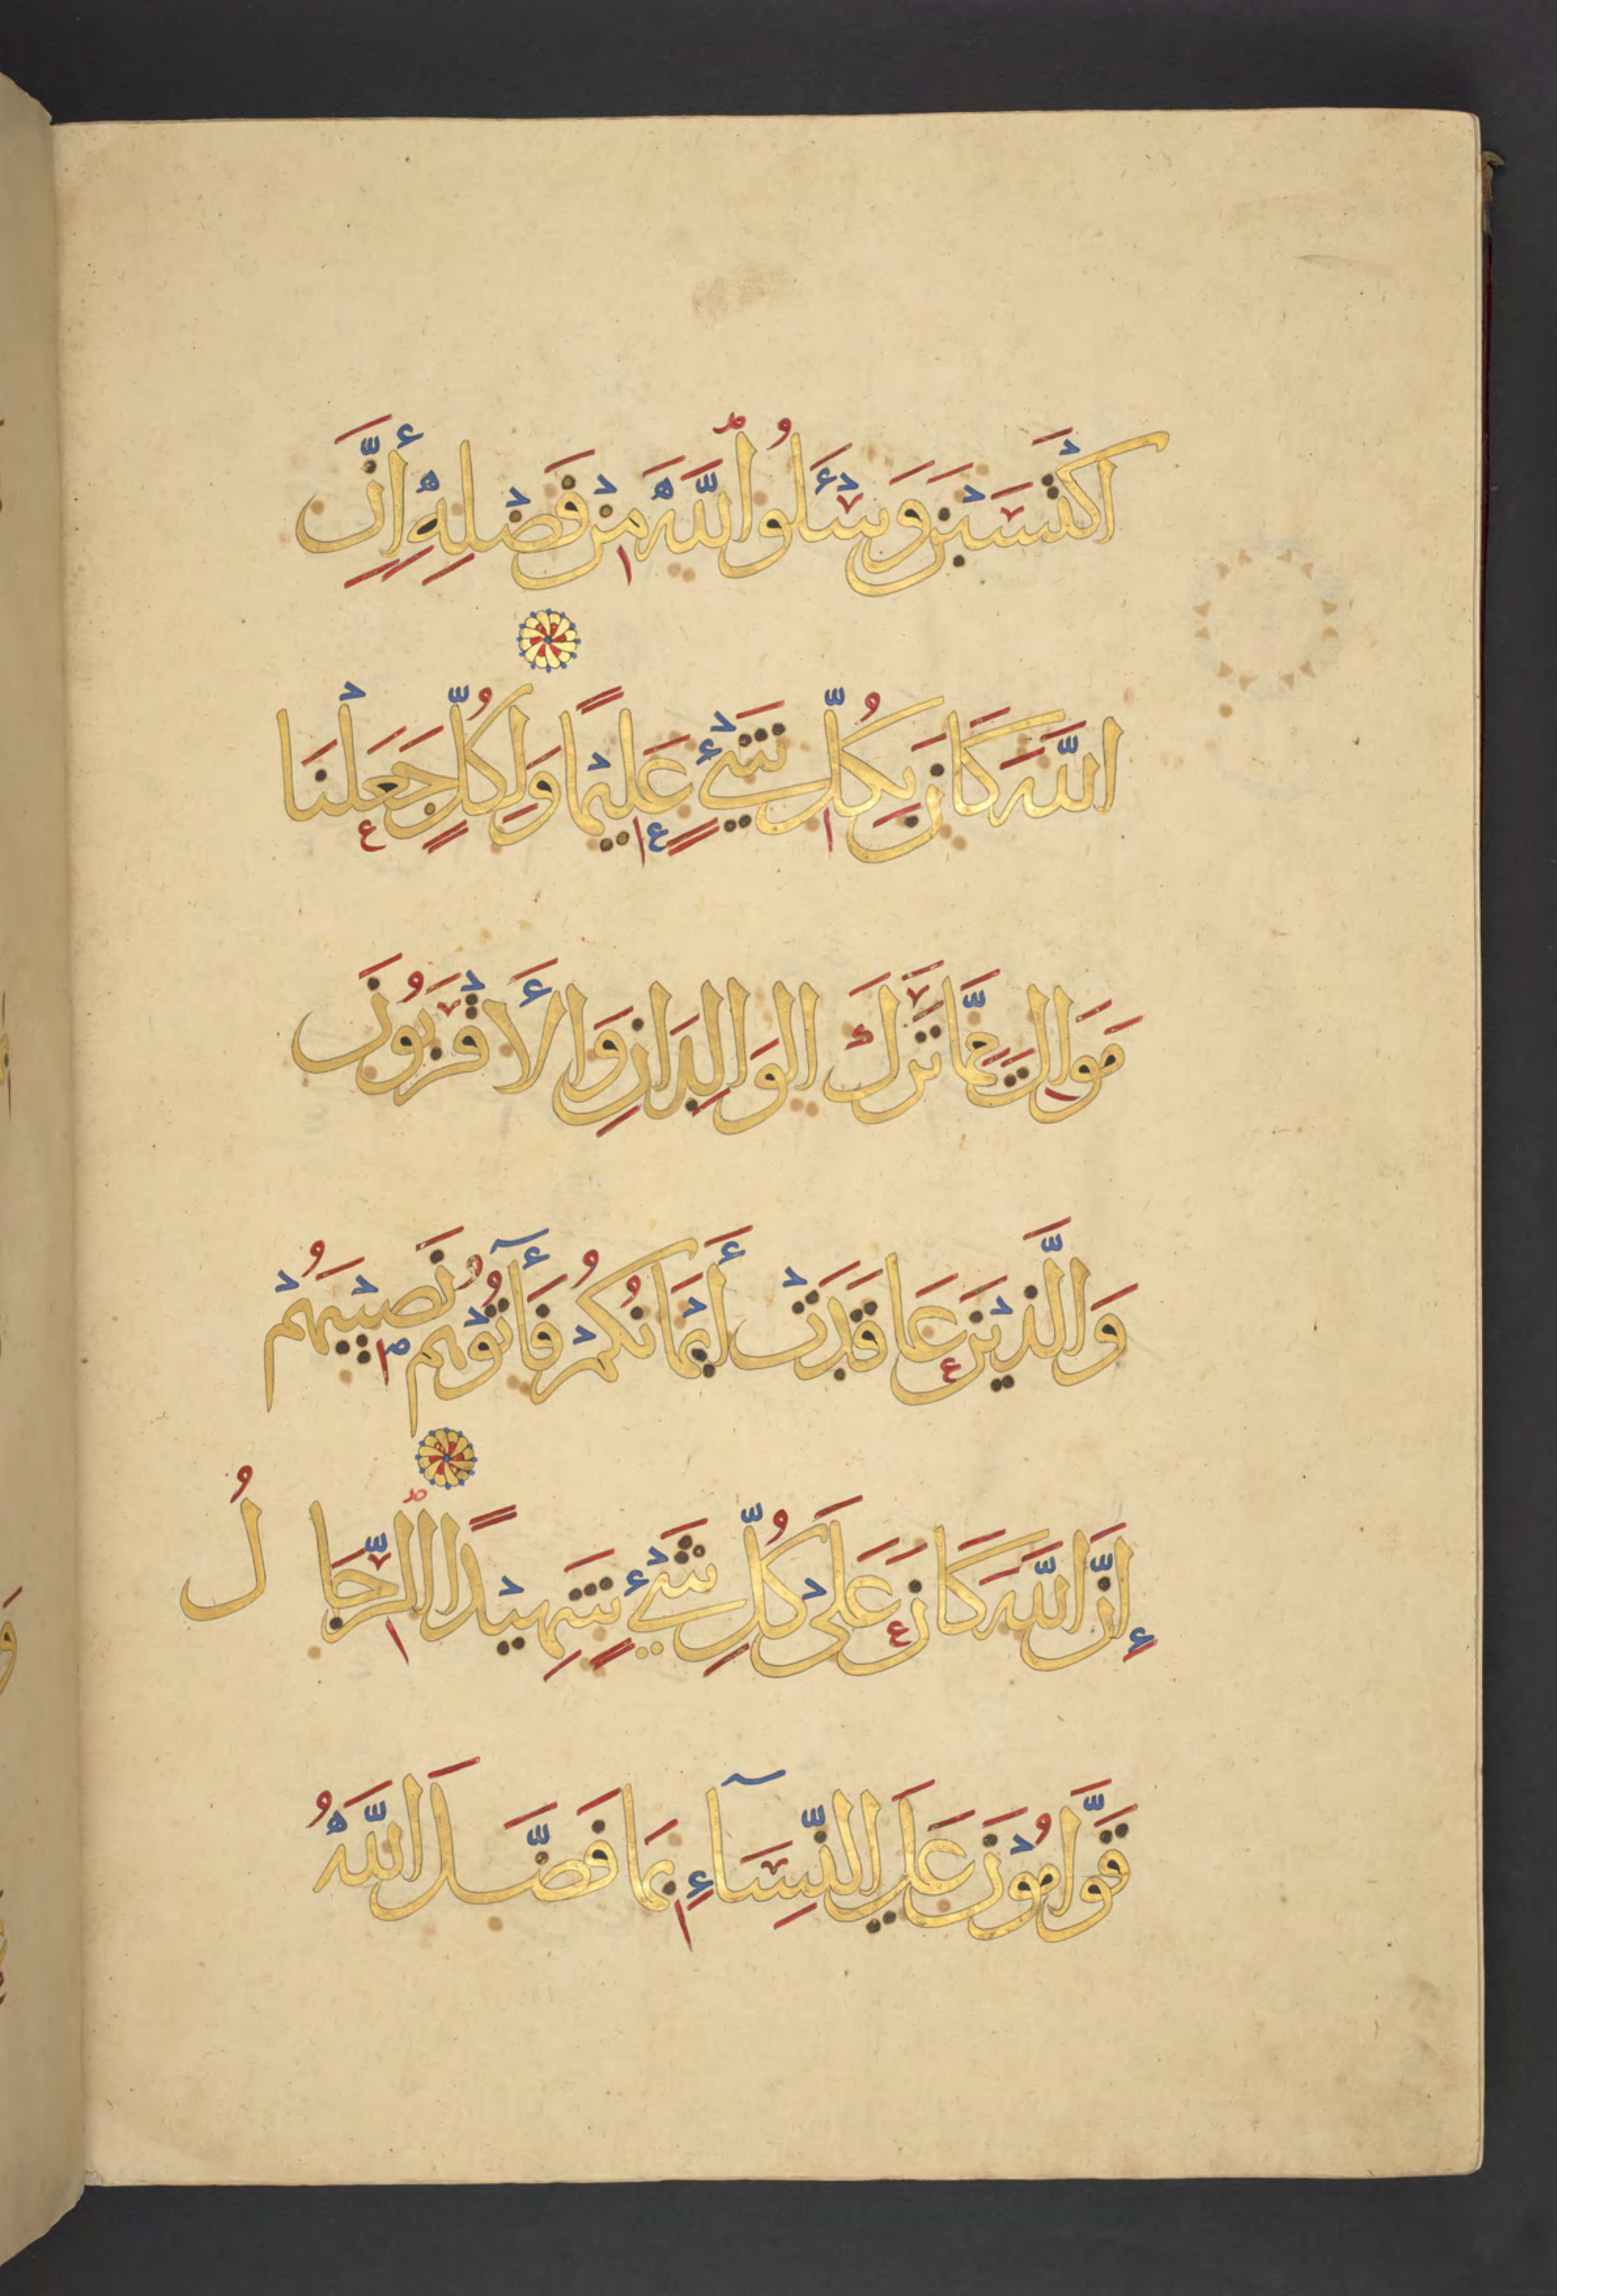 اكْتَسَبْنَ وَسْئَلُوا اللَّهَ مِنْ فَضْلِهِ إِنَّ
اللَّهَ كَانَ بِكُلِّ شَيْءٍ عَلِيمًا وَلِكُلٍّ جَعَلْنَا
مَوَالِيَ مِمَّا تَرَكَ الْوَالِدَانِ وَالْأَقْرَبُونَ
وَالَّذِينَ عَاقَدَتْ أَيْمَانُكُمْ فَآتُوهُمْ نَصِيبَهُمْ
إِنَّ اللَّهَ كَانَ عَلَى كُلِّ شَيْءٍ شَهِيدًا الرِّجَالُ
قَوَّامُونَ عَلَى النِّسَاءِ بِمَا فَضَّلَ اللَّهُ